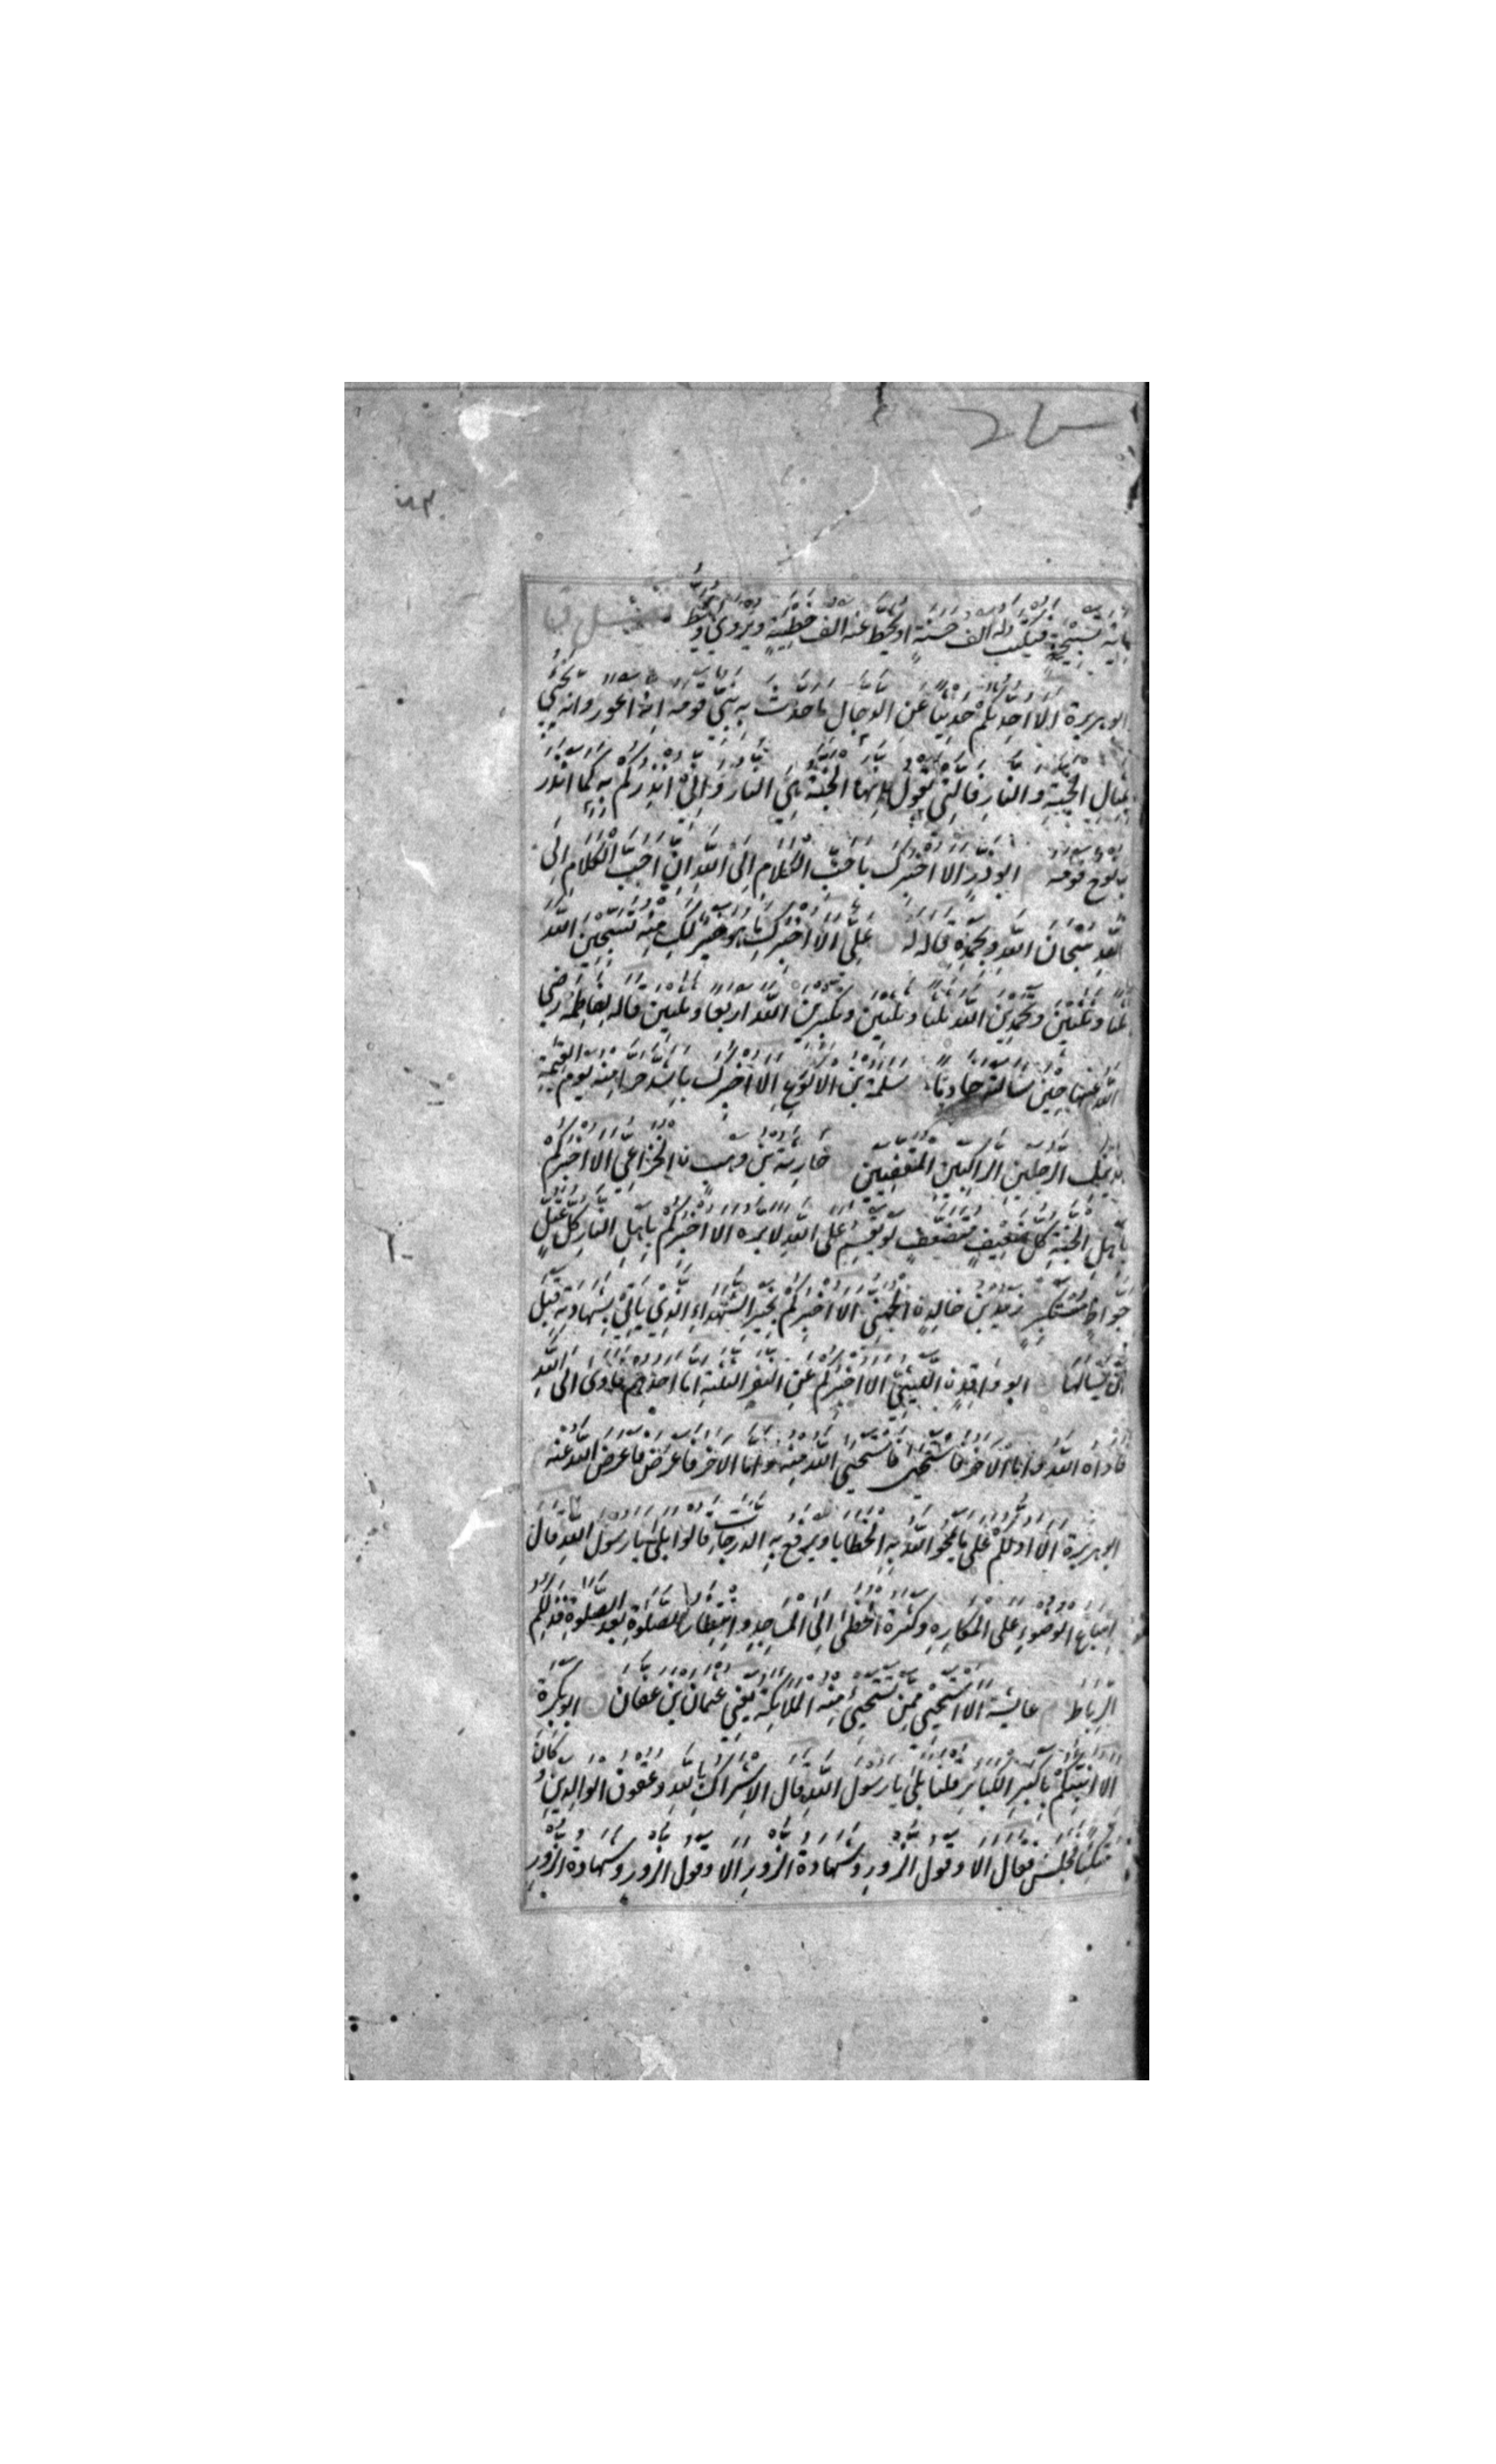 مائة تسبيحة فيكتب له الف حسنة او يحط عنه الف خطيئة ويروى ويحط
ابو هريرة الا احدثكم حديثا عن الدجال ما حدث به نبي قومه انه اعور وانه يجئ
بمثال الجنة والنار فالتي يقول انها الجنة هي النار واني انذركم به كما انذر
به نوح قومه ابو ذر الا اخبرك باحب الكلام الى الله ان احب الكلام الى
الله سبحان الله وبحمده قاله له علي الا اخبرك ما هو خير لك منه تسبحين الله
ثلثا وثلثين وتحمدين الله ثلثا وثلثين وتكبرين الله اربعا وثلثين قاله لفاطمة رضي
الله عنها حين سالته خادما سلمة بن الاكوع الا اخبرك باشد حرا منه يوم القيمة
هذينك الرجلين الراكبين المقفيين حارثة بن وهب ن الخزاعي الا اخبركم
باهل الجنة كل ضعيف متضعف لو يقسم على الله لابره الا اخبركم باهل النار كل عتل
جواظ مستكبر زيد بن خالد ن الجهني الا اخبركم بخير الشهداء الذي ياتي بشهادته قبل
ان يسالها ابو واقد ن الليثي الا اخبركم عن النفر الثلثة اما احدهم فاوى الى الله
فاواه الله واما الاخر فاستحيى فاستحيى الله منه واما الاخر فاعرض فاعرض الله عنه
ابو هريرة الا ادلكم على ما يمحو الله به الخطايا ويرفع به الدرجات قالوا بلى يا رسول الله قال
اسباغ الوضوء على المكاره وكثرة الخطى الى المساجد وانتظار الصلوة بعد الصلوة فذلكم
الرباط عايشة الا استحيي ممن تستحيي منه الملائكة يعني عثمان بن عفان ابو بكرة
الا انبئكم باكبر الكبائر قلنا بلى يا رسول الله قال الاشراك بالله وعقوق الوالدين وكان
متكئا فجلس فقال الا وقول الزور وشهادة الزور الا وقول الزور وشهادة الزور